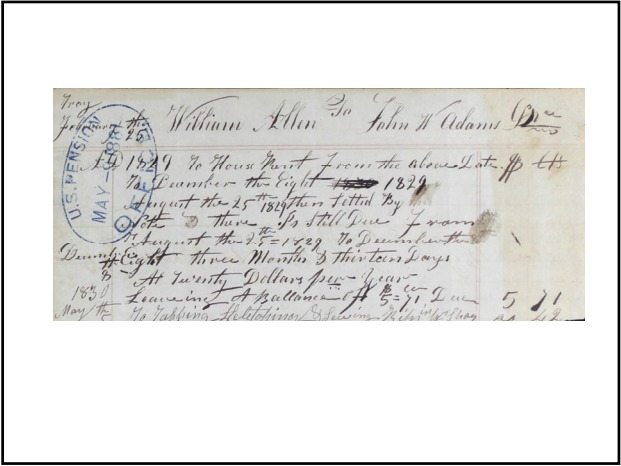 Troy
February the 25 William Allen To John W Adams Dr
AD 1829 To House Rent From the above Date $ cts
To December the Eight 1829
August the 25th 1829 then Settled By
Note there Is Still Due From
August the 25=1829 To December the
Eight three Months & thirteen Days
At Twenty Dollars per Year
Leaveing A Ballance of $5=71 Due 5 71
1830
May th To Tapping
U.S. PENSION
MAY - 1887